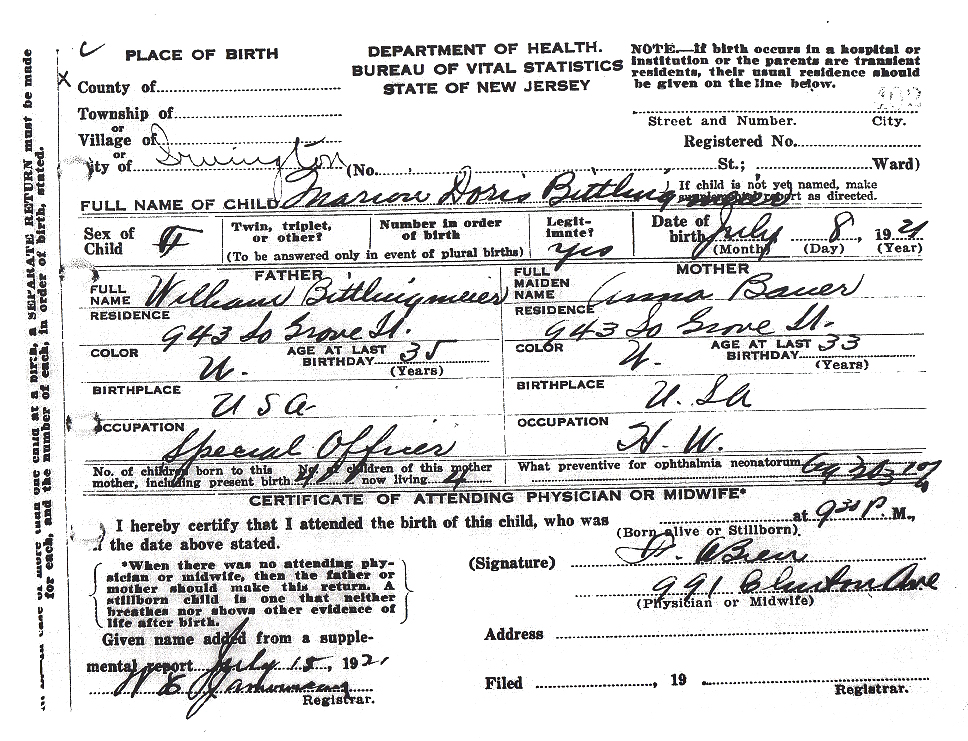 PLACE OF BIRTH
DEPARTMENT OF HEALTH.
BUREAU OF VITAL STATISTICS
STATE OF NEW JERSEY
NOTE.—If birth occurs in a hospital or
institution or the parents are transient
residents, their usual residence should
be given on the line below.
County of
Township of
or
Village of
or
City of Irvington
Street and Number. City.
Registered No.
(No. St.; Ward)
FULL NAME OF CHILD Marion Doris Bittlingmeier
If child is not yet named, make
supplemental report as directed.
Sex of
Child F
Twin, triplet,
or other?
Number in order
of birth
(To be answered only in event of plural births)
Legit-
imate? yes
Date of
birth July 8, 1921
(Month) (Day) (Year)
FATHER
FULL
NAME William Bittlingmeier
RESIDENCE
943 So Grove St.
COLOR W.
AGE AT LAST
BIRTHDAY 35
(Years)
BIRTHPLACE
USA
OCCUPATION
Special Officer
MOTHER
FULL
MAIDEN
NAME Anna Bauer
RESIDENCE
943 So Grove St.
COLOR W.
AGE AT LAST
BIRTHDAY 33
(Years)
BIRTHPLACE
U.SA
OCCUPATION
H. W.
No. of children born to this
mother, including present birth. 4
No. of children of this mother
now living. 4
What preventive for ophthalmia neonatorum
CERTIFICATE OF ATTENDING PHYSICIAN OR MIDWIFE*
I hereby certify that I attended the birth of this child, who was at 9 30 P. M.,
(Born alive or Stillborn).
the date above stated.
*When there was no attending phy-
sician or midwife, then the father or
mother should make this return. A
stillborn child is one that neither
breathes nor shows other evidence of
life after birth.
(Signature)
991 Clinton Ave
(Physician or Midwife)
Given name added from a supple-
mental report July 15, 1921
Registrar.
Address
Filed , 19
Registrar.
a SEPARATE RETURN must be made
for each, and the number of each, in order of birth, stated.